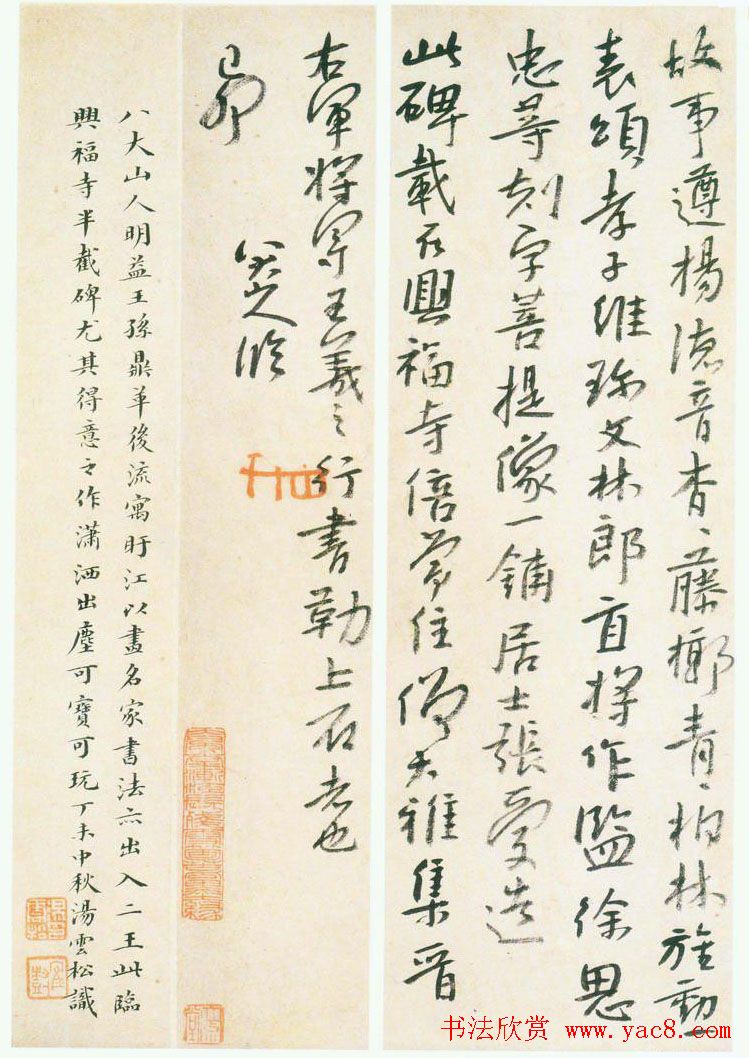 故事遵揚德音杳〻藤槨青〻柏林旌勳
表頌孝子維珎文林郎直將作監徐思
忠等刻字菩提像一鋪居士張受造
此碑載在興福寺倍常住僧大雅集晋
右軍將軍王羲之行書勒上石者也
己卯
八大山人臨
八大山人明益王孫鼎革後流寓盱江以畫名家書法亦出入二王此臨
興福寺半截碑尤其得意之作瀟洒出塵可寶可玩丁未中秋湯雲松識
书法欣赏 www.yac8.com